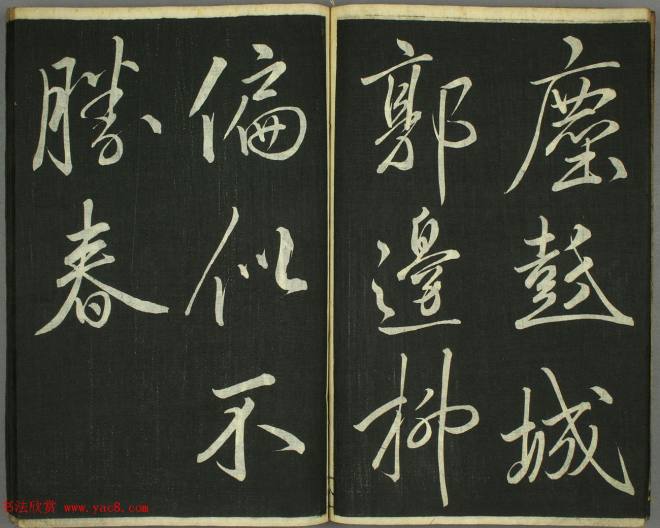 塵彭城
郭邊柳
偏似不
勝春
书法欣赏 www.yac8.com